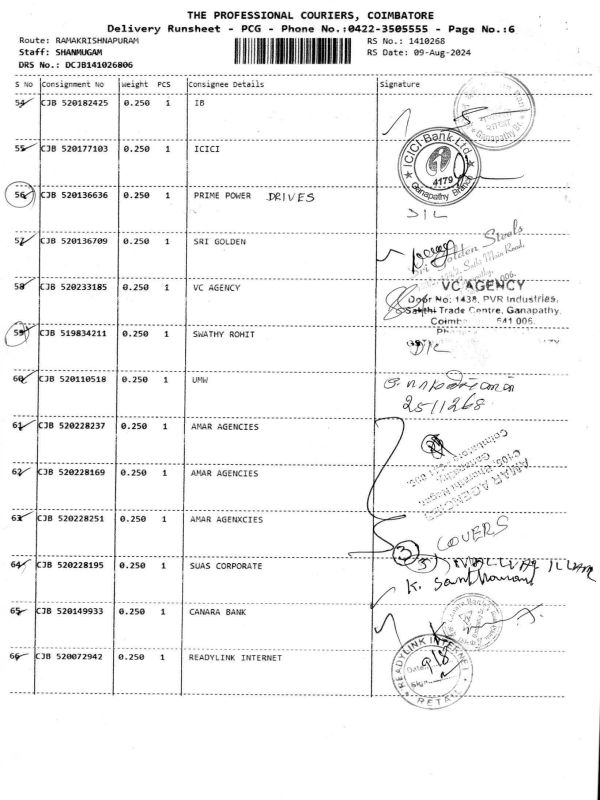 THE PROFESSIONAL COURIERS, COIMBATORE
Delivery Runsheet - PCG - Phone No.:0422-3505555 - Page No.:6
Route: RAMAKRISHNAPURAM RS No.: 1410268
Staff: SHANMUGAM RS Date: 09-Aug-2024
DRS No.: DCJB141026806
S No Consignment No Weight PCS Consignee Details Signature
54 CJB 520182425 0.250 1 IB
Ganapathy Br.
55 CJB 520177103 0.250 1 ICICI
ICICI Bank Ltd.
4179
Ganapathy Branch
56 CJB 520136636 0.250 1 PRIME POWER DRIVES
57 CJB 520136709 0.250 1 SRI GOLDEN
Sri Golden Steels
58 CJB 520233185 0.250 1 VC AGENCY
VC AGENCY
Door No: 1438, PVR Industries,
Sakthi Trade Centre, Ganapathy.
641 006.
59 CJB 519834211 0.250 1 SWATHY ROHIT
60 CJB 520110518 0.250 1 UMW
2511268
61 CJB 520228237 0.250 1 AMAR AGENCIES
62 CJB 520228169 0.250 1 AMAR AGENCIES
AMAR AGENCIES
63 CJB 520228251 0.250 1 AMAR AGENXCIES
3 COVERS
64 CJB 520228195 0.250 1 SUAS CORPORATE
K. Santhamani
65 CJB 520149933 0.250 1 CANARA BANK
66 CJB 520072942 0.250 1 READYLINK INTERNET
READYLINK INTERNET
Date: 9/8
Sign
RETAIL